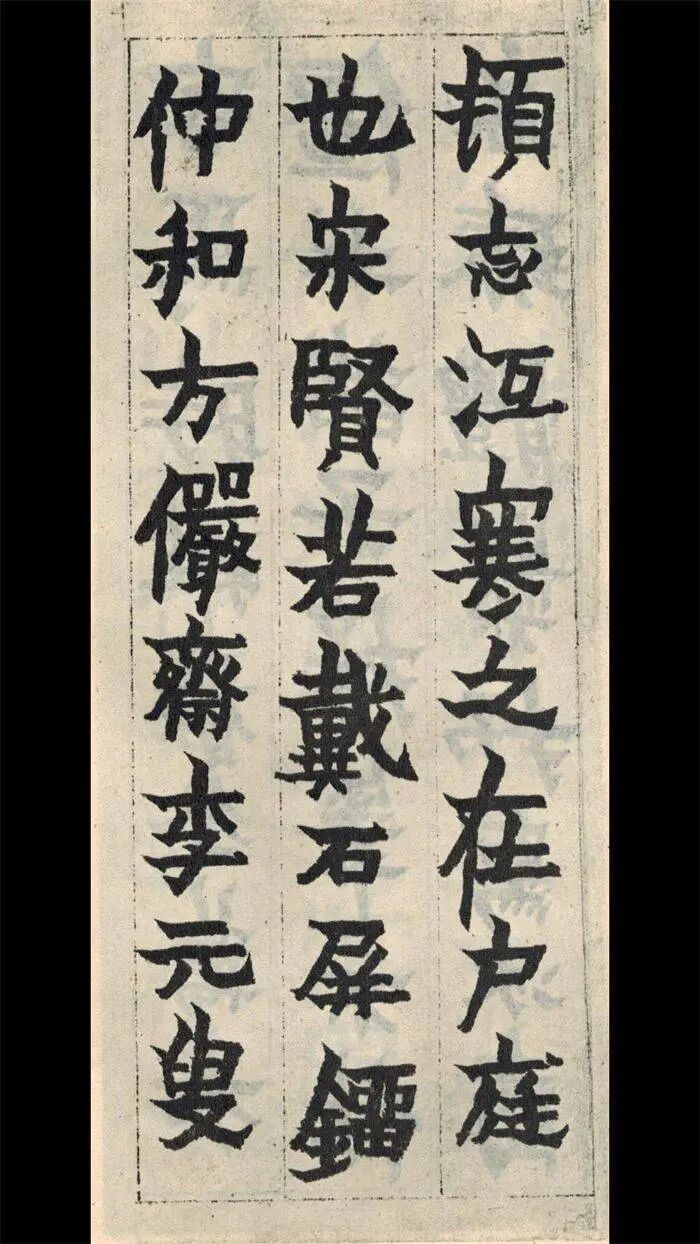 頓忘沍寒之在户庭
也宋賢若戴石屏鐂
仲和方儼齋李元叟